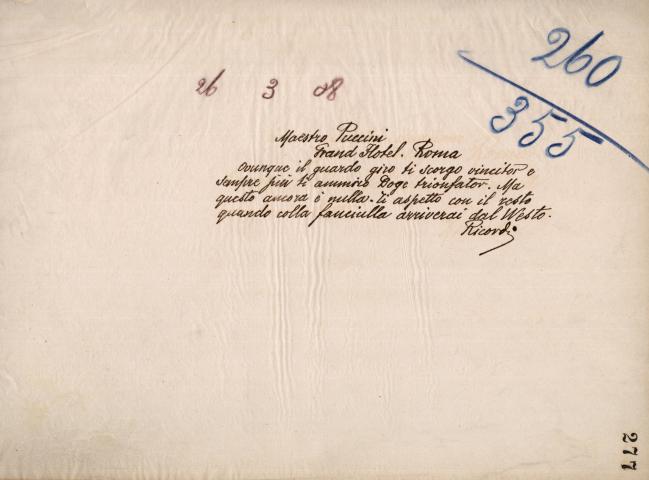 260
355
26 3 08
Maestro Puccini
Grand Hotel. Roma
Ovunque il guardo giro ti scorgo vincitor e
sempre più ti ammiro Doge trionfator. Ma
questo ancora è nulla. ti aspetto con il resto
quando colla fanciulla arriverai dal Westo.
Ricordi
277